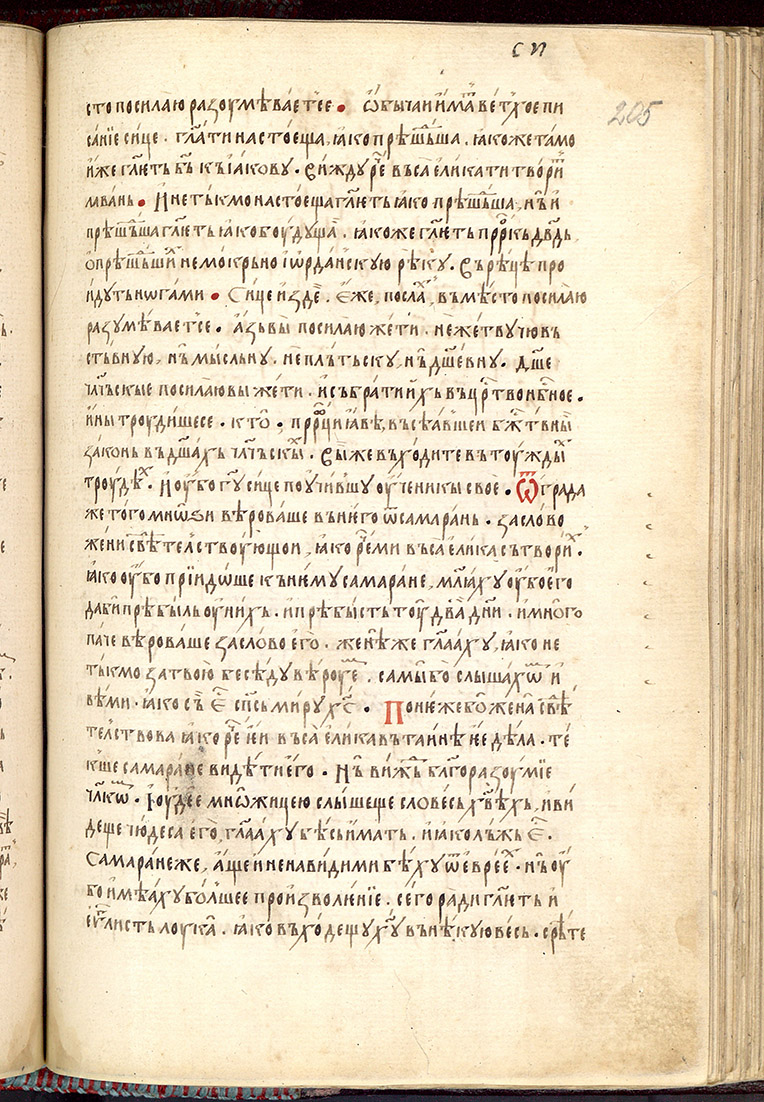 си
205
сто посилаю разоумѣваетсе • ѡ҆бычаи и҆мⷶ ветⷯое пи
са́нїе сице . гл҃ати настоеща, ꙗ҆ко прѣшⷣьша . ꙗ҆коже тамо
и҆же гл҃еть бь҃ къ і҆а́кову . виждь рⷱ҇е въса е҆лика ти твори́ⷮ
лавань • И не тькмо настоеща гл҃еть ꙗ҆ко прѣшⷣьша, нь҆ и҆
прѣшⷣьша гл҃еть ꙗ҆ко боудущаⷶ . ꙗ҆коже гл҃еть прⷪ҇ркь дв҃дь,
о҆ прѣшⷣьшїиⷯ немокрьно і҆ѡрда́нскую рѣку . въ рѣцѣ про
идуть ногами • Сице и здеⷭ . е҆же, послаⷯ, въмѣсто посилаю
разумѣваетсе • а҆зь вы посилаю жети . не жетву чювь
ствную, нь мы́сльну . не пльтьску, нь дш҃е́вну . дш҃е
чл҃ьскые посилаю вы жети . и събрати ихь въ црⷭ҇тво нб҃ное .
и҆ны троудишесе . кто̀ , прⷪ҇роци ꙗ҆вѣ, въсѣа́вшеи бжⷭ҇твныи
законь въ дш҃ахь чл҃ьскыⷯ . вы́ же въходите въ тоуждыⷯ
троудѣⷯ . И оу҆бо гу҃ сице поучи́вшу оу҆ченикы свое . Ѿ града
же того мнѡѕи вѣроваше въ него ѿ самарань . за сло́во
жени свⷣѣтелствоую́щои , ꙗ҆ко рⷱ҇е ми въса е҆лика сътвори́ⷯ .
ꙗ҆ко оу҆бо прїидоше къ нему самаране, мл҃іаху оу҆бо его
даби прѣбыль оу҆ нихь . и прѣбысть тоу҆ два̀ дни . и много
паче вѣроваше за слово е҆го . женѣ же гл҃аа́ху , ꙗ҆ко не
тькмо за твою бесѣду вѣроуеⷨ . самы бо слышахѡⷨ и҆
вѣми . ꙗ҆ко съ еⷭ спⷭ҇ь миру хⷭ҇ . Поне́же бо жена̀ свⷣѣ
телствова ꙗ҆ко рⷱ҇е е҆и въса̀ е҆лика въ таинѣ ие дѣла . те
кꙋше самара́не видѣти его . Нь вижⷣь бл҃горазоумїе
чл҃кѡⷨ . І҆оуде́е мнѡжицею слы́шеще словесь хв҃ѣхь, и ви
деще чюдеса е҆го, гл҃аа́ху бѣсь и́мать . и ꙗ҆ко льжь еⷭ .
Самаране же , а҆ще и ненавидими бѣху ѿ е҆вре́еⷯ . нь оу҆
бо и҆мѣа́ху бо́лшее произволе́нїе . сего ради гл҃еть и
еѵⷢ҇листь лоука̀ . ꙗ҆ко въхо́дещу ху҃ въ нѣкую весь . срѣте